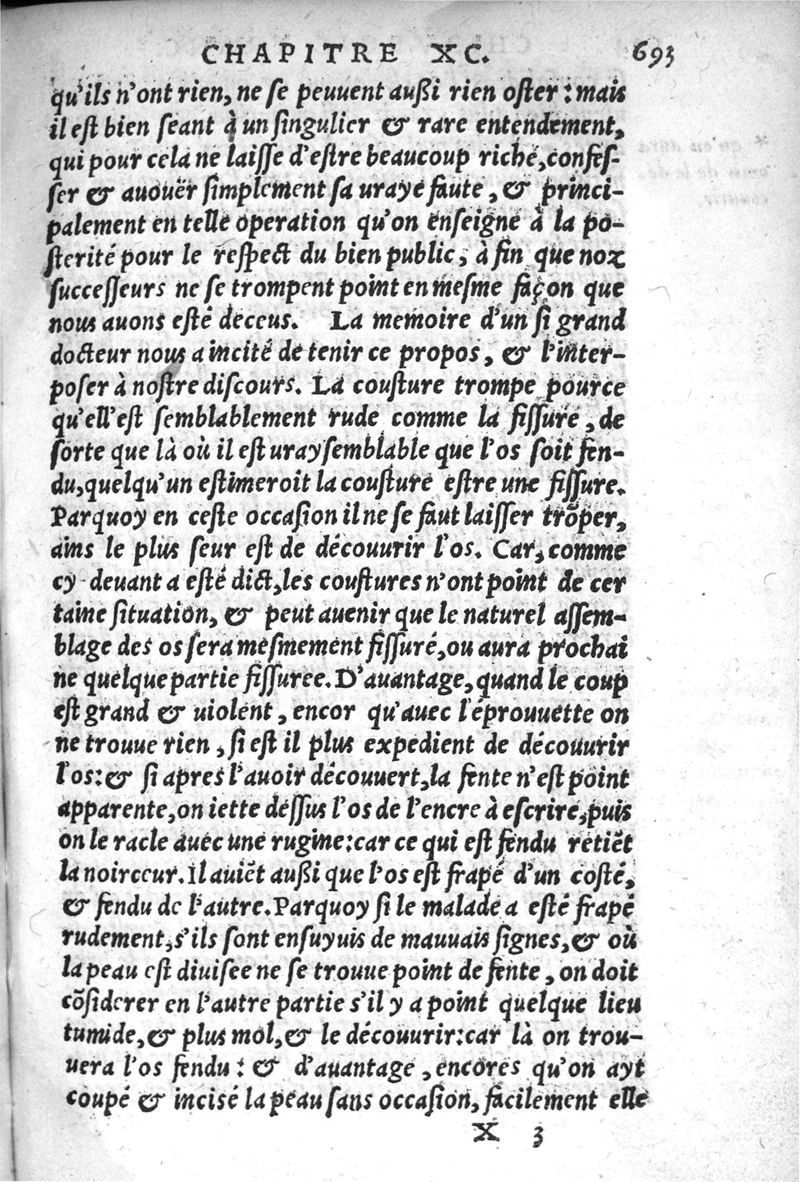 CHAPITRE XC. 693
qu'ils n'ont rien, ne se peuuent außi rien oster : mais
il est bien seant à un singulier & rare entendement,
qui pour cela ne laisse d'estre beaucoup riché, confes-
ser & auouër simplement sa uraye faute, & princi-
palement en telle operation qu'on enseigne à la po-
sterité pour le respect du bien public, à fin que nox
successeurs ne se trompent point en mesme façon que
nous auons esté deceus. La memoire d'un si grand
docteur nous a incité de tenir ce propos, & l'inter-
poser à nostre discours. La cousture trompe pource
qu'ell'est semblablement rude comme la fissure, de
sorte que là où il est uray semblable que l'os soit fen-
du, quelqu'un estimeroit la cousture estre une fissure.
Parquoy en ceste occasion il ne se faut laisser trõper,
ains le plus seur est de découurir l'os. Car, comme
cy deuant a esté dict, les coustures n'ont point de cer
taine situation, & peut auenir que le naturel assem-
blage des os sera mesmement fissuré, ou aura prochai
ne quelque partie fissuree. D'auantage, quand le coup
est grand & uiolent, encor qu'auec l'éprouuette on
ne trouue rien, si est il plus expedient de découurir
l'os: & si apres l'auoir découuert, la fente n'est point
apparente, on iette dessus l'os de l'encre à escrire, puis
on le racle auec une rugine: car ce qui est fendu retiẽt
la noirceur. Il auiẽt außi que l'os est frapé d'un costé,
& fendu de l'autre. Parquoy si le malade a esté frapé
rudement, s'ils sont ensuyuis de mauuais signes, & où
la peau est diuisee ne se trouue point de fente, on doit
cõsiderer en l'autre partie s'il y a point quelque lieu
tumide, & plus mol, & le découurir: car là on trou-
uera l'os fendu : & d'auantage, encores qu'on ayt
coupé & incisé la peau sans occasion, facilement elle
X 3